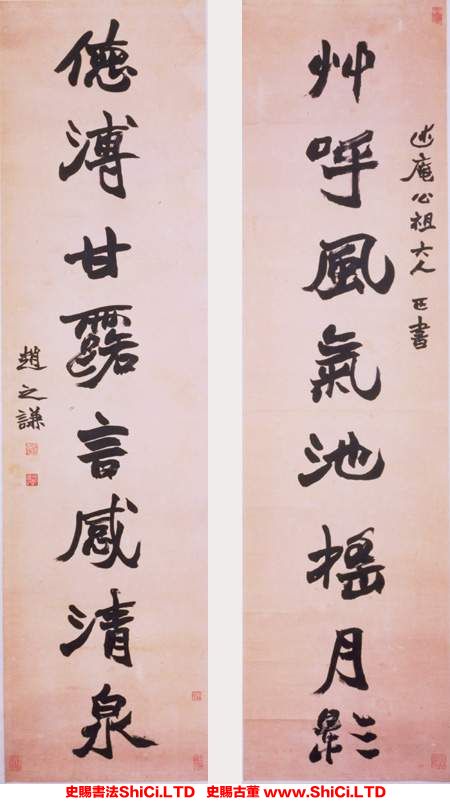 述庵公祖大人 正書
艸呼風氣池搖月影
德溥甘露言感清泉
趙之謙
史賜書法ShiCi.LTD 史賜古董 www.ShiCi.LTD